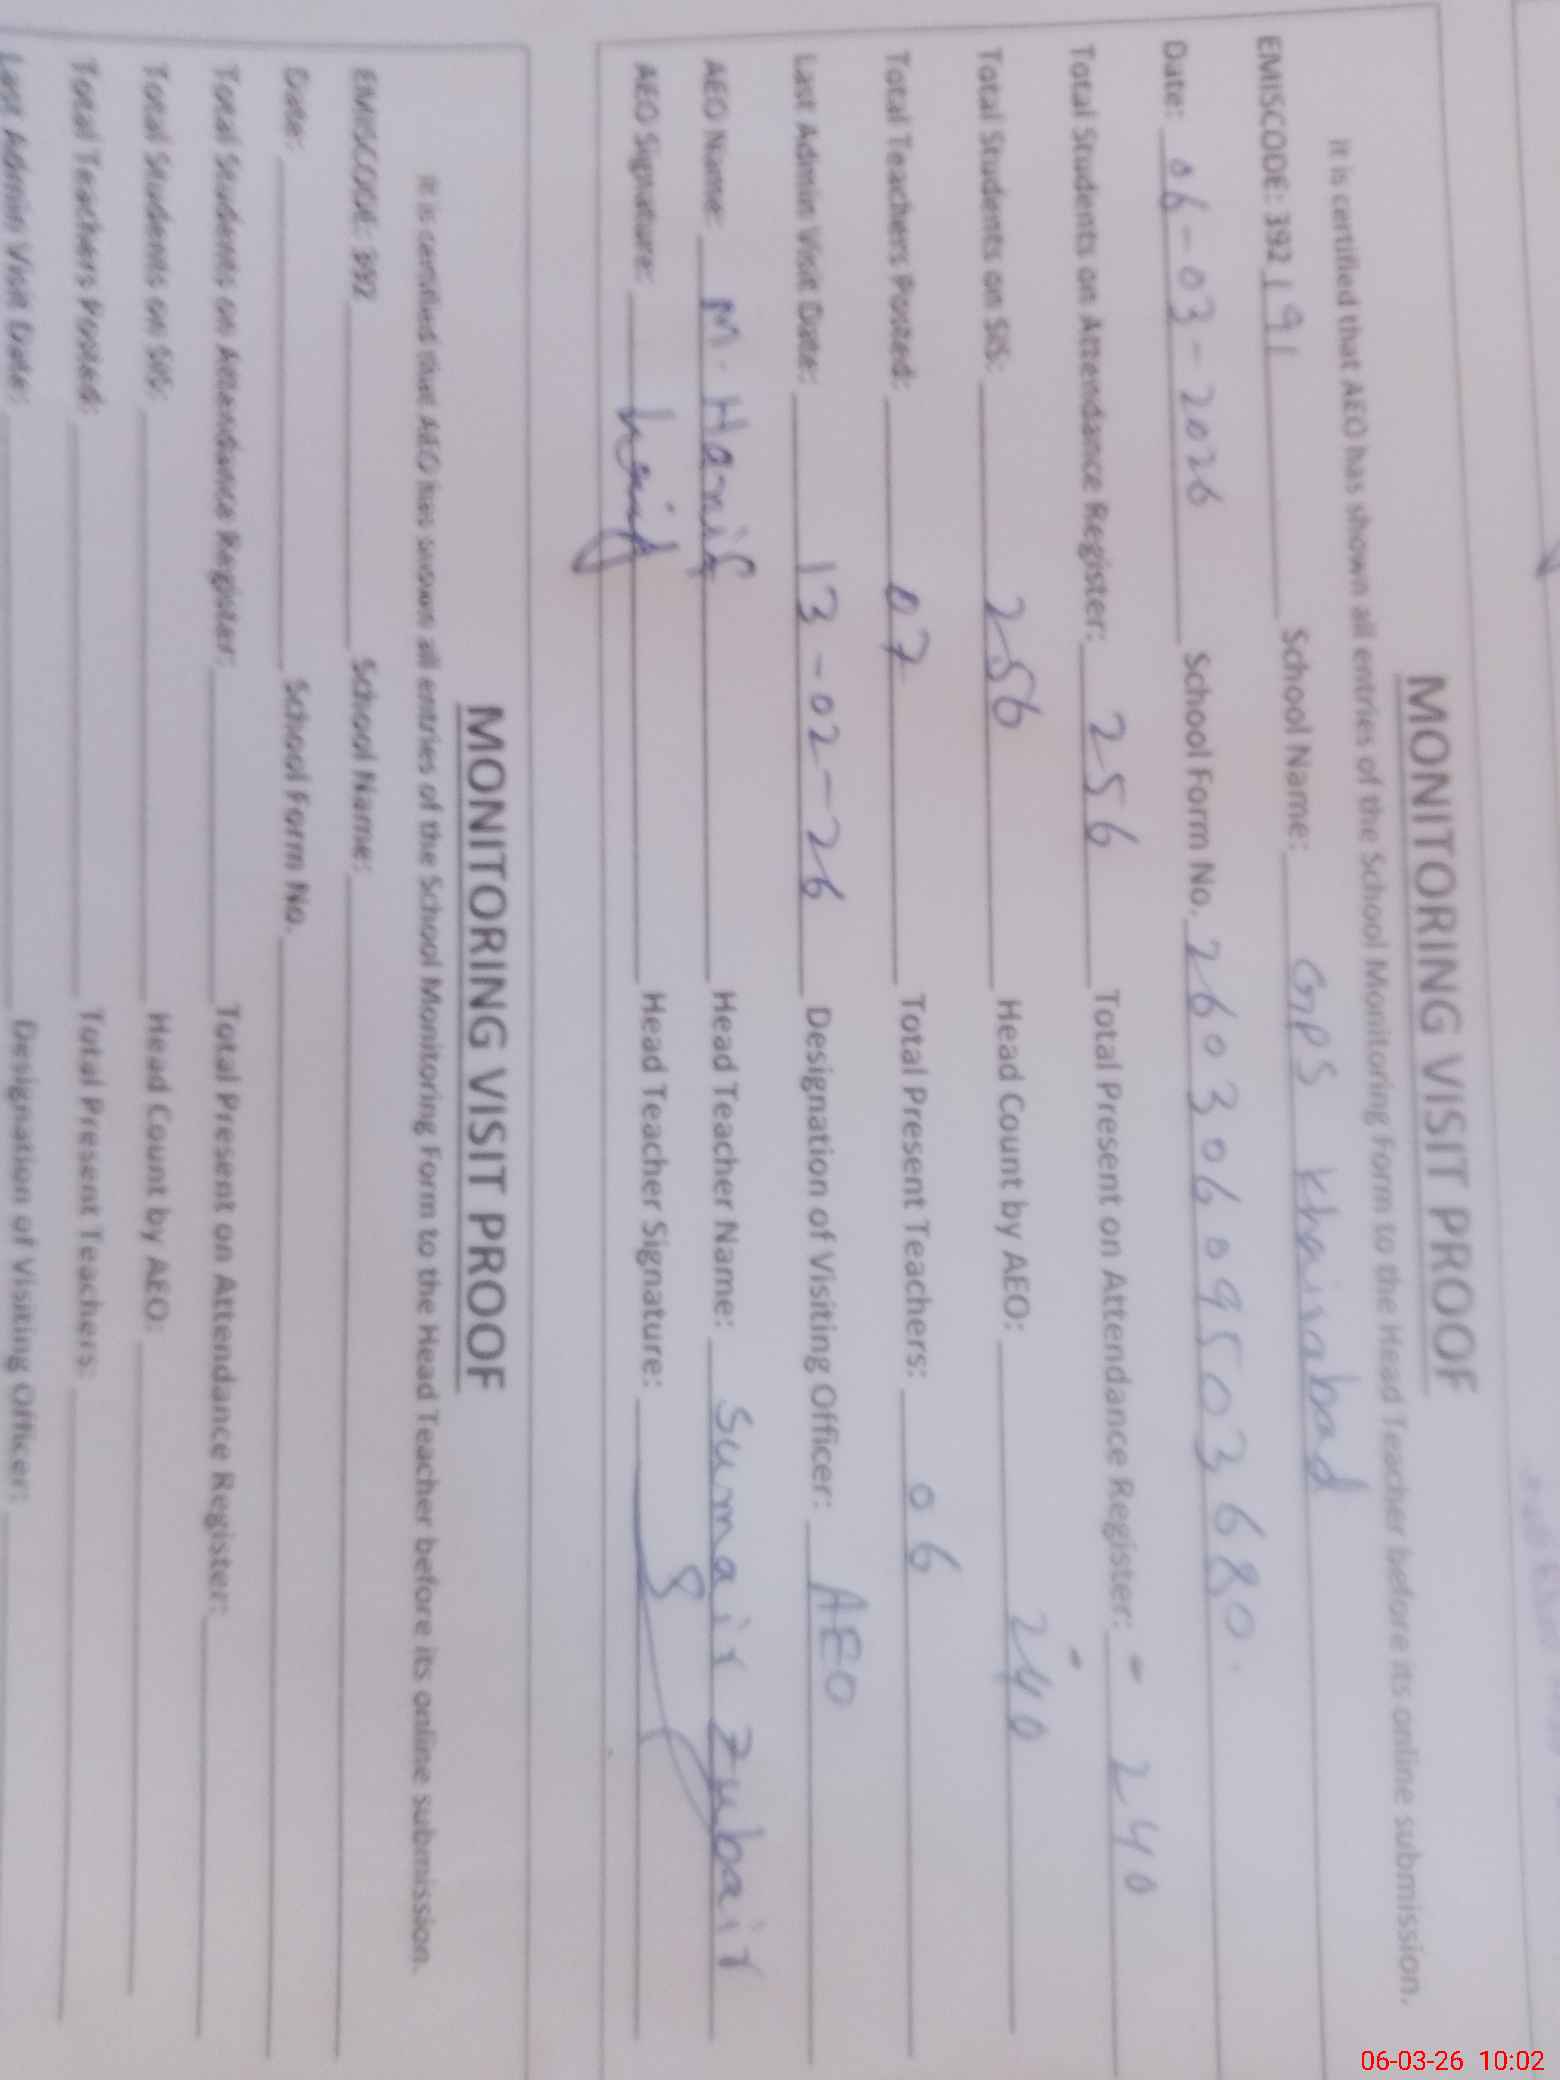 MONITORING VISIT PROOF
It is certified that AEO has shown all entries of the School Monitoring Form to the Head Teacher before its online submission.
EMISCODE: 392 191 School Name: GPS Khairabad
Date: 06-03-2026 School Form No. 26030609503680.
Total Students on Attendance Register: 256 Total Present on Attendance Register: - 240
Total Students on SIS: 256 Head Count by AEO: 240
Total Teachers Posted: 07 Total Present Teachers: 06
Last Admin Visit Date: 13-02-26 Designation of Visiting Officer: AEO
AEO Name: M. Hanif Head Teacher Name: Sumair Zubair
AEO Signature: Hanif Head Teacher Signature:
MONITORING VISIT PROOF
It is certified that AEO has shown all entries of the School Monitoring Form to the Head Teacher before its online submission.
EMISCODE: 392 School Name:
Date: School Form No.
Total Students on Attendance Register: Total Present on Attendance Register:
Total Students on SIS: Head Count by AEO:
Total Teachers Posted: Total Present Teachers:
Last Admin Visit Date: Designation of Visiting Officer:
06-03-26 10:02